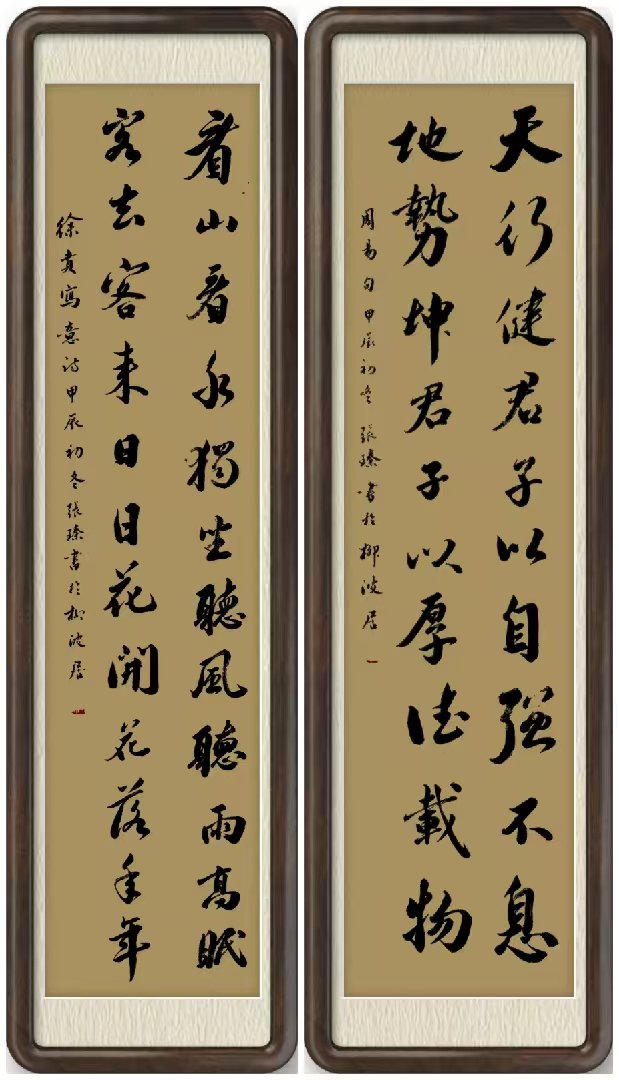 天行健君子以自强不息
地勢坤君子以厚德載物
周易句甲辰初冬張書於柳波居
看山看水獨坐聽風聽雨高眠
客去客來日日花開花落年年
徐賁寫意詩甲辰初冬張書於柳波居